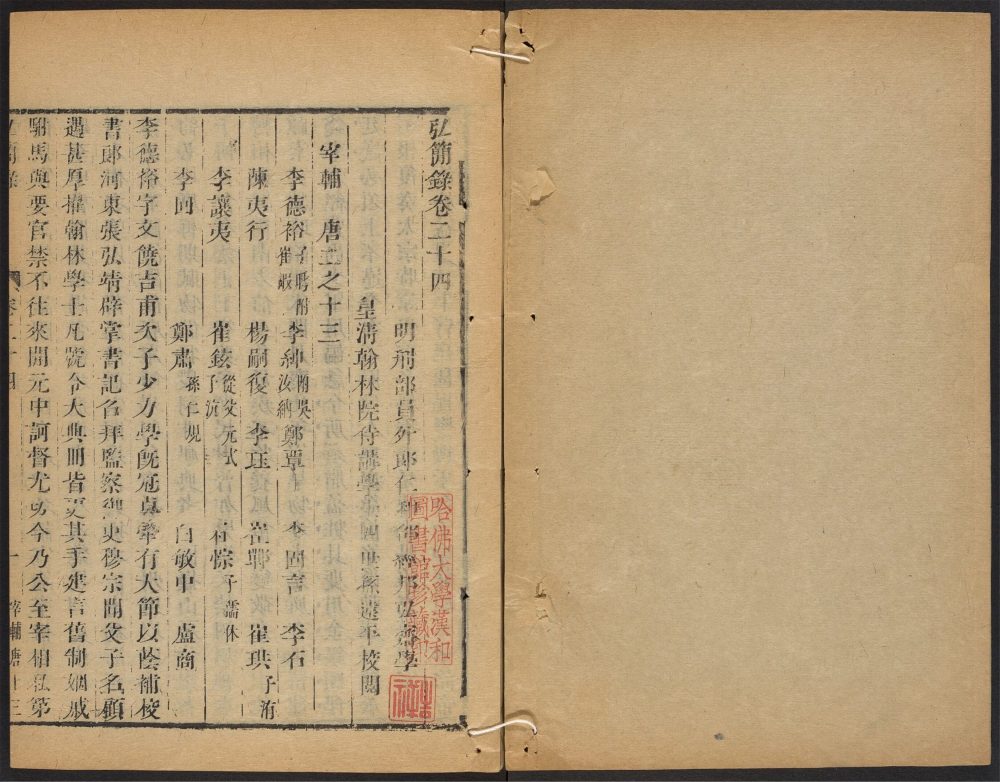 弘簡錄卷二十四
明刑部員外郎仁和邵經邦弘齋學
皇淸翰林院侍講學 四世 遠平校閱
宰輔 唐 之十三
李德裕 子 崔嘏 李紳 附吳汝納 鄭覃 李固言 李石
陳夷行 楊嗣復 李珏 崔鄲 崔珙 子涓
李讓夷 崔鉉 從父元式 子沆 杜悰 子孺休
李回 鄭肅 孫仁規 白敏中 盧商
李德裕字文饒吉甫次子少力學旣冠卓犖有大節以蔭補校
書郎河東張弘靖辟掌書記召拜監察御史穆宗聞父子名顧
遇甚厚擢翰林學士凡號令大典冊皆更其手建言舊制姻戚
駙馬與要官禁不往來開元中訶督尤切今乃公至宰相私第
弘簡錄 卷二十四 一 宰輔唐 十三
哈佛大學漢和
圖書館珍藏印